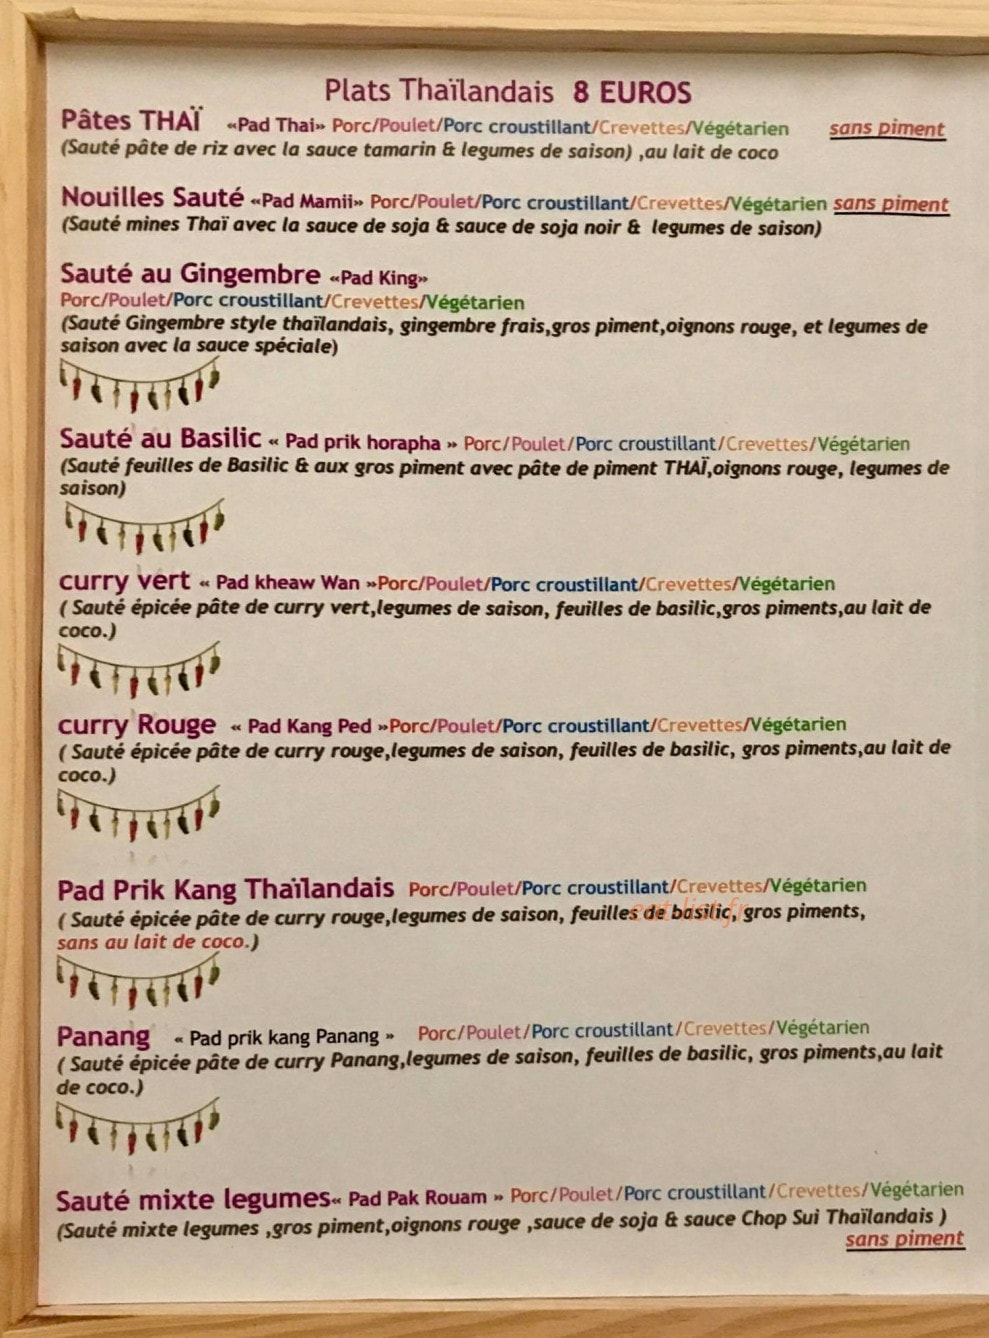 Plats Thaïlandais 8 EUROS
Pâtes THAÏ «Pad Thai» Porc/Poulet/Porc croustillant/Crevettes/Végétarien sans piment
(Sauté pâte de riz avec la sauce tamarin & legumes de saison) ,au lait de coco
Nouilles Sauté «Pad Mamii» Porc/Poulet/Porc croustillant/Crevettes/Végétarien sans piment
(Sauté mines Thaï avec la sauce de soja & sauce de soja noir & legumes de saison)
Sauté au Gingembre «Pad King»
Porc/Poulet/Porc croustillant/Crevettes/Végétarien
(Sauté Gingembre style thaïlandais, gingembre frais,gros piment,oignons rouge, et legumes de
saison avec la sauce spéciale)
Sauté au Basilic « Pad prik horapha » Porc/Poulet/Porc croustillant/Crevettes/Végétarien
(Sauté feuilles de Basilic & aux gros piment avec pâte de piment THAÏ,oignons rouge, legumes de
saison)
curry vert « Pad kheaw Wan »Porc/Poulet/Porc croustillant/Crevettes/Végétarien
( Sauté épicée pâte de curry vert,legumes de saison, feuilles de basilic,gros piments,au lait de
coco.)
curry Rouge « Pad Kang Ped »Porc/Poulet/Porc croustillant/Crevettes/Végétarien
( Sauté épicée pâte de curry rouge,legumes de saison, feuilles de basilic, gros piments,au lait de
coco.)
Pad Prik Kang Thaïlandais Porc/Poulet/Porc croustillant/Crevettes/Végétarien
( Sauté épicée pâte de curry rouge,legumes de saison, feuilles de basilic, gros piments,
eat-list.fr
sans au lait de coco.)
Panang « Pad prik kang Panang » Porc/Poulet/Porc croustillant/Crevettes/Végétarien
( Sauté épicée pâte de curry Panang,legumes de saison, feuilles de basilic, gros piments,au lait
de coco.)
Sauté mixte legumes« Pad Pak Rouam » Porc/Poulet/Porc croustillant/Crevettes/Végétarien
(Sauté mixte legumes ,gros piment,oignons rouge ,sauce de soja & sauce Chop Sui Thaïlandais )
sans piment